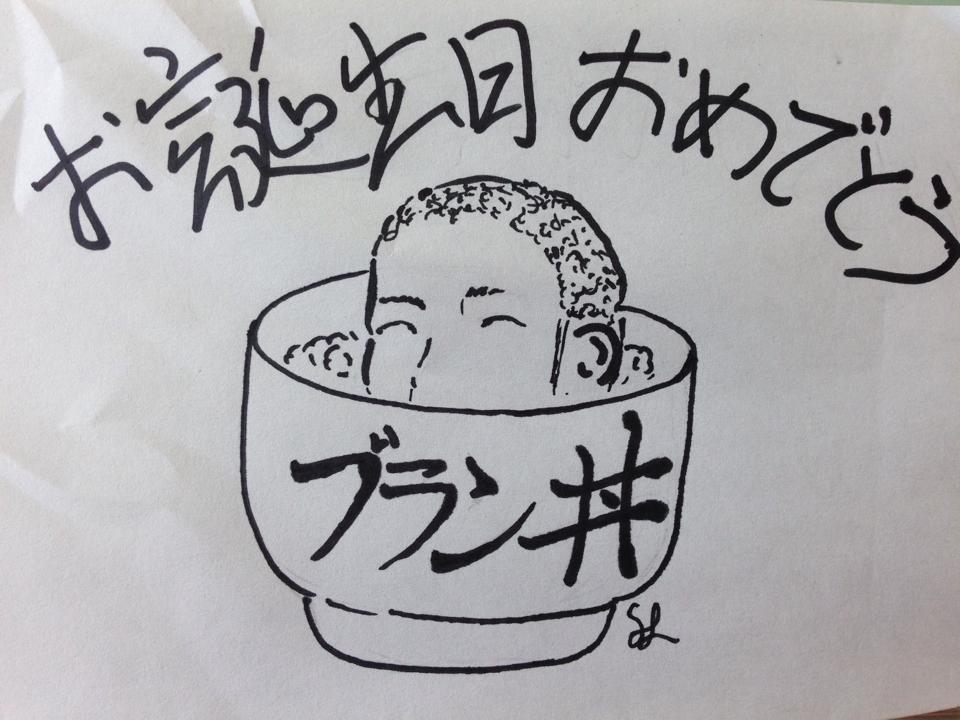 お誕生日おめでとう
ブラン丼